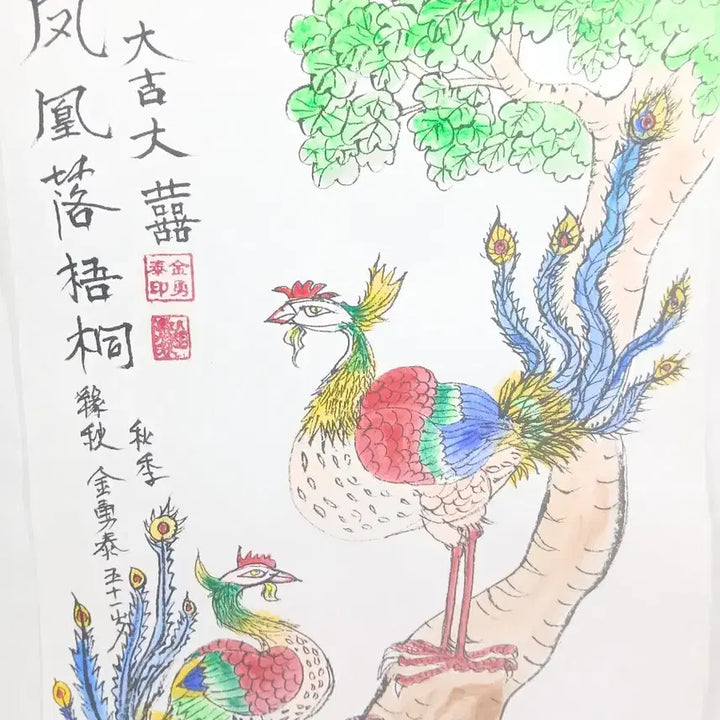 凤凰落梧桐
大吉大囍
金勇
泰印
秋季
秋
金勇泰五十一岁